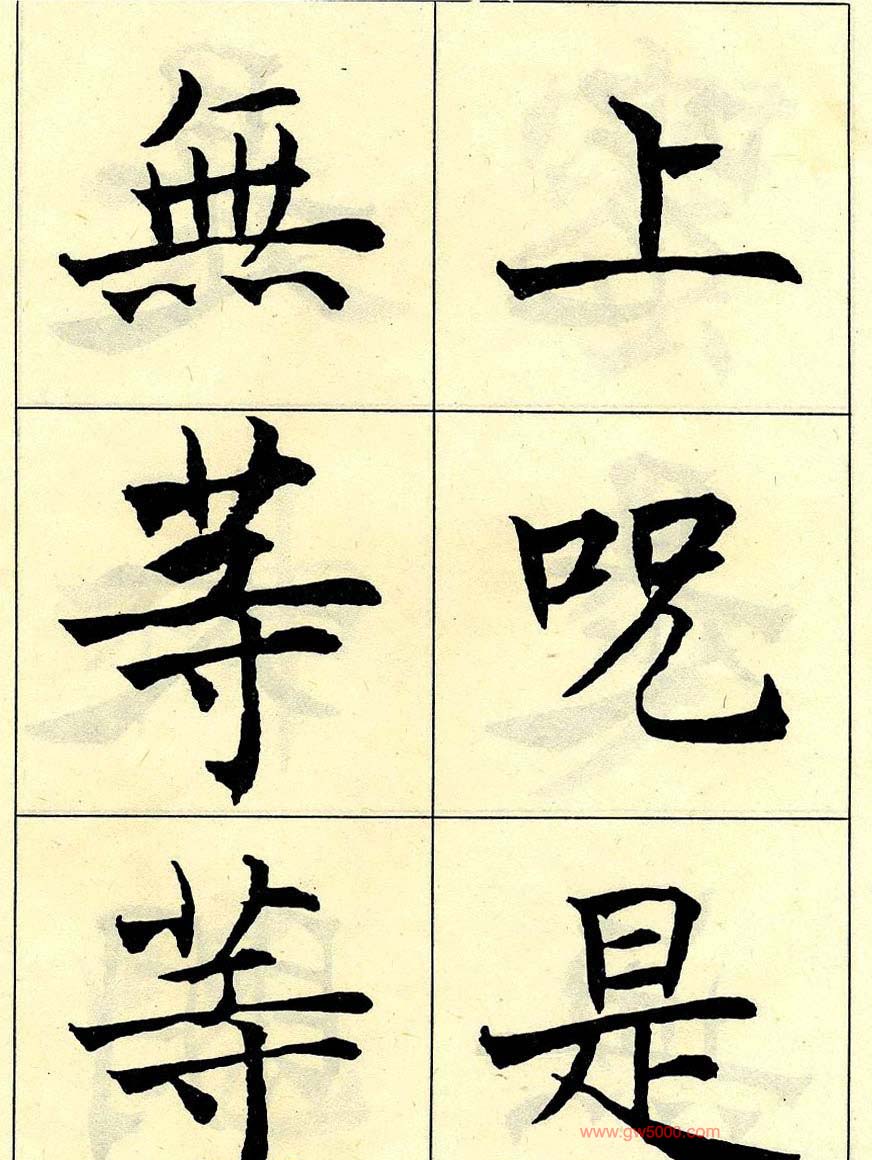 上呪是
無等等
www.gw5000.com